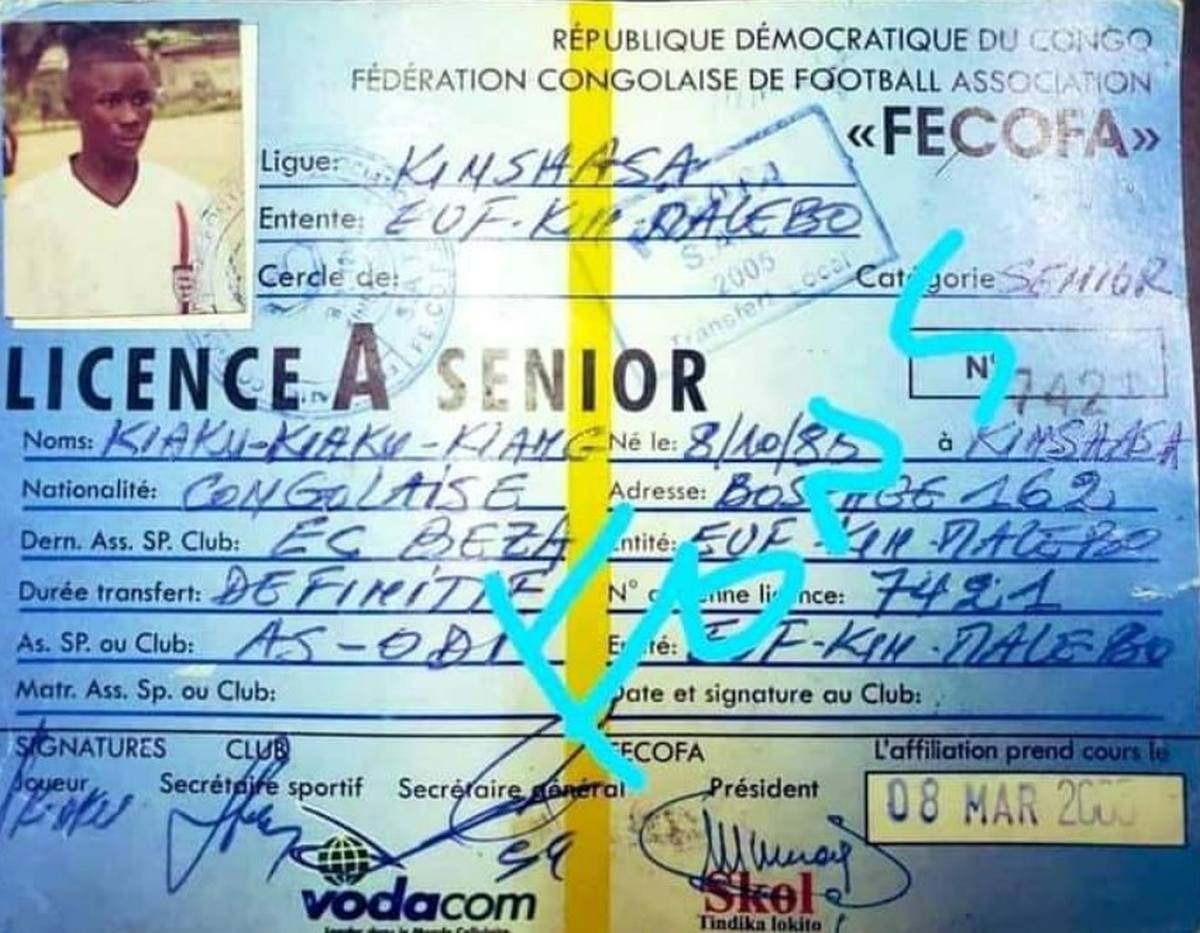 RÉPUBLIQUE DÉMOCRATIQUE DU CONGO
FÉDÉRATION CONGOLAISE DE FOOTBALL ASSOCIATION
«FECOFA»
Ligue: KINSHASA
Entente: EUF-KIN-MALEBO
Cercle de:
Catégorie SENIOR
2005
Transfert Local
LICENCE A SENIOR
N° 7421
Noms: KIAKU-KIAKU-KIANG Né le: 8/10/85 à KINSHASA
Nationalité: CONGOLAISE Adresse: 162
Dern. Ass. SP. Club: EC BEZA Entité: EUF-KIN-MALEBO
Durée transfert: DEFINITIF N° licence: 7421
As. SP. ou Club: AS-ODI Entité: EUF-KIN-MALEBO
Matr. Ass. Sp. ou Club: Date et signature au Club:
SIGNATURES CLUB FECOFA L'affiliation prend cours le
Joueur Secrétaire sportif Secrétaire général Président
08 MAR
vodacom
Skol
Leader dans le Monde Cellulaire
Tindika lokito